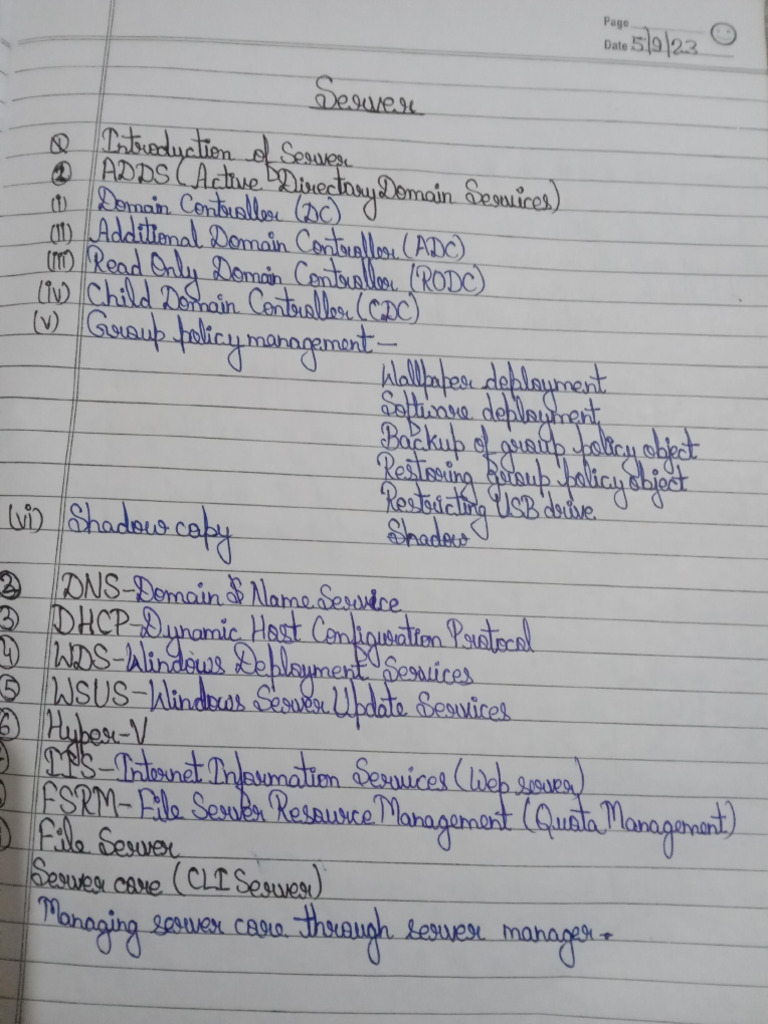 Page
Date 5/9/23
Server
Introduction of Server
① ADDS (Active Directory Domain Services)
(i) Domain Controller (DC)
(ii) Additional Domain Controller (ADC)
(iii) Read Only Domain Controller (RODC)
(iv) Child Domain Controller (CDC)
(v) Group policy management —
Wallpaper deployment
Software deployment
Backup of group policy object
Restoring group policy object
Restricting USB drive
Shadow
(vi) Shadow copy
② DNS - Domain Name Service
③ DHCP - Dynamic Host Configuration Protocol
④ WDS - Windows Deployment Services
⑤ WSUS - Windows Server Update Services
⑥ Hyper-V
IIS - Internet Information Services (Web server)
FSRM - File Server Resource Management (Quota Management)
File Server
Server core (CLI Server)
Managing server core through server manager.